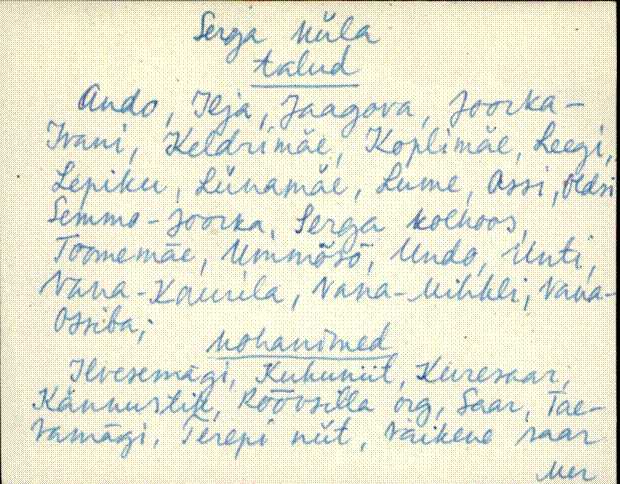 Serga küla
talud
Ando, Ilja, Jaagova, Joorka-
Ivani, Keldrimäe, Koplimäe, Leegi,
Lepiku, Lünamäe, Lume, Assi, Oldsi
Semmo-Joorka, Serga kolhoos,
Toomemäe, Ummõsõ, Undo, Unti,
Vana-Kaurila, Vana-Mihkli, Vana-
Ossiba;
kohanimed
Ilvesemägi, Kuhuniit, Kuresaar,
Kännustik, Röövsilla org, Saar, Tae-
vamägi, Terepi niit, Väikene saar